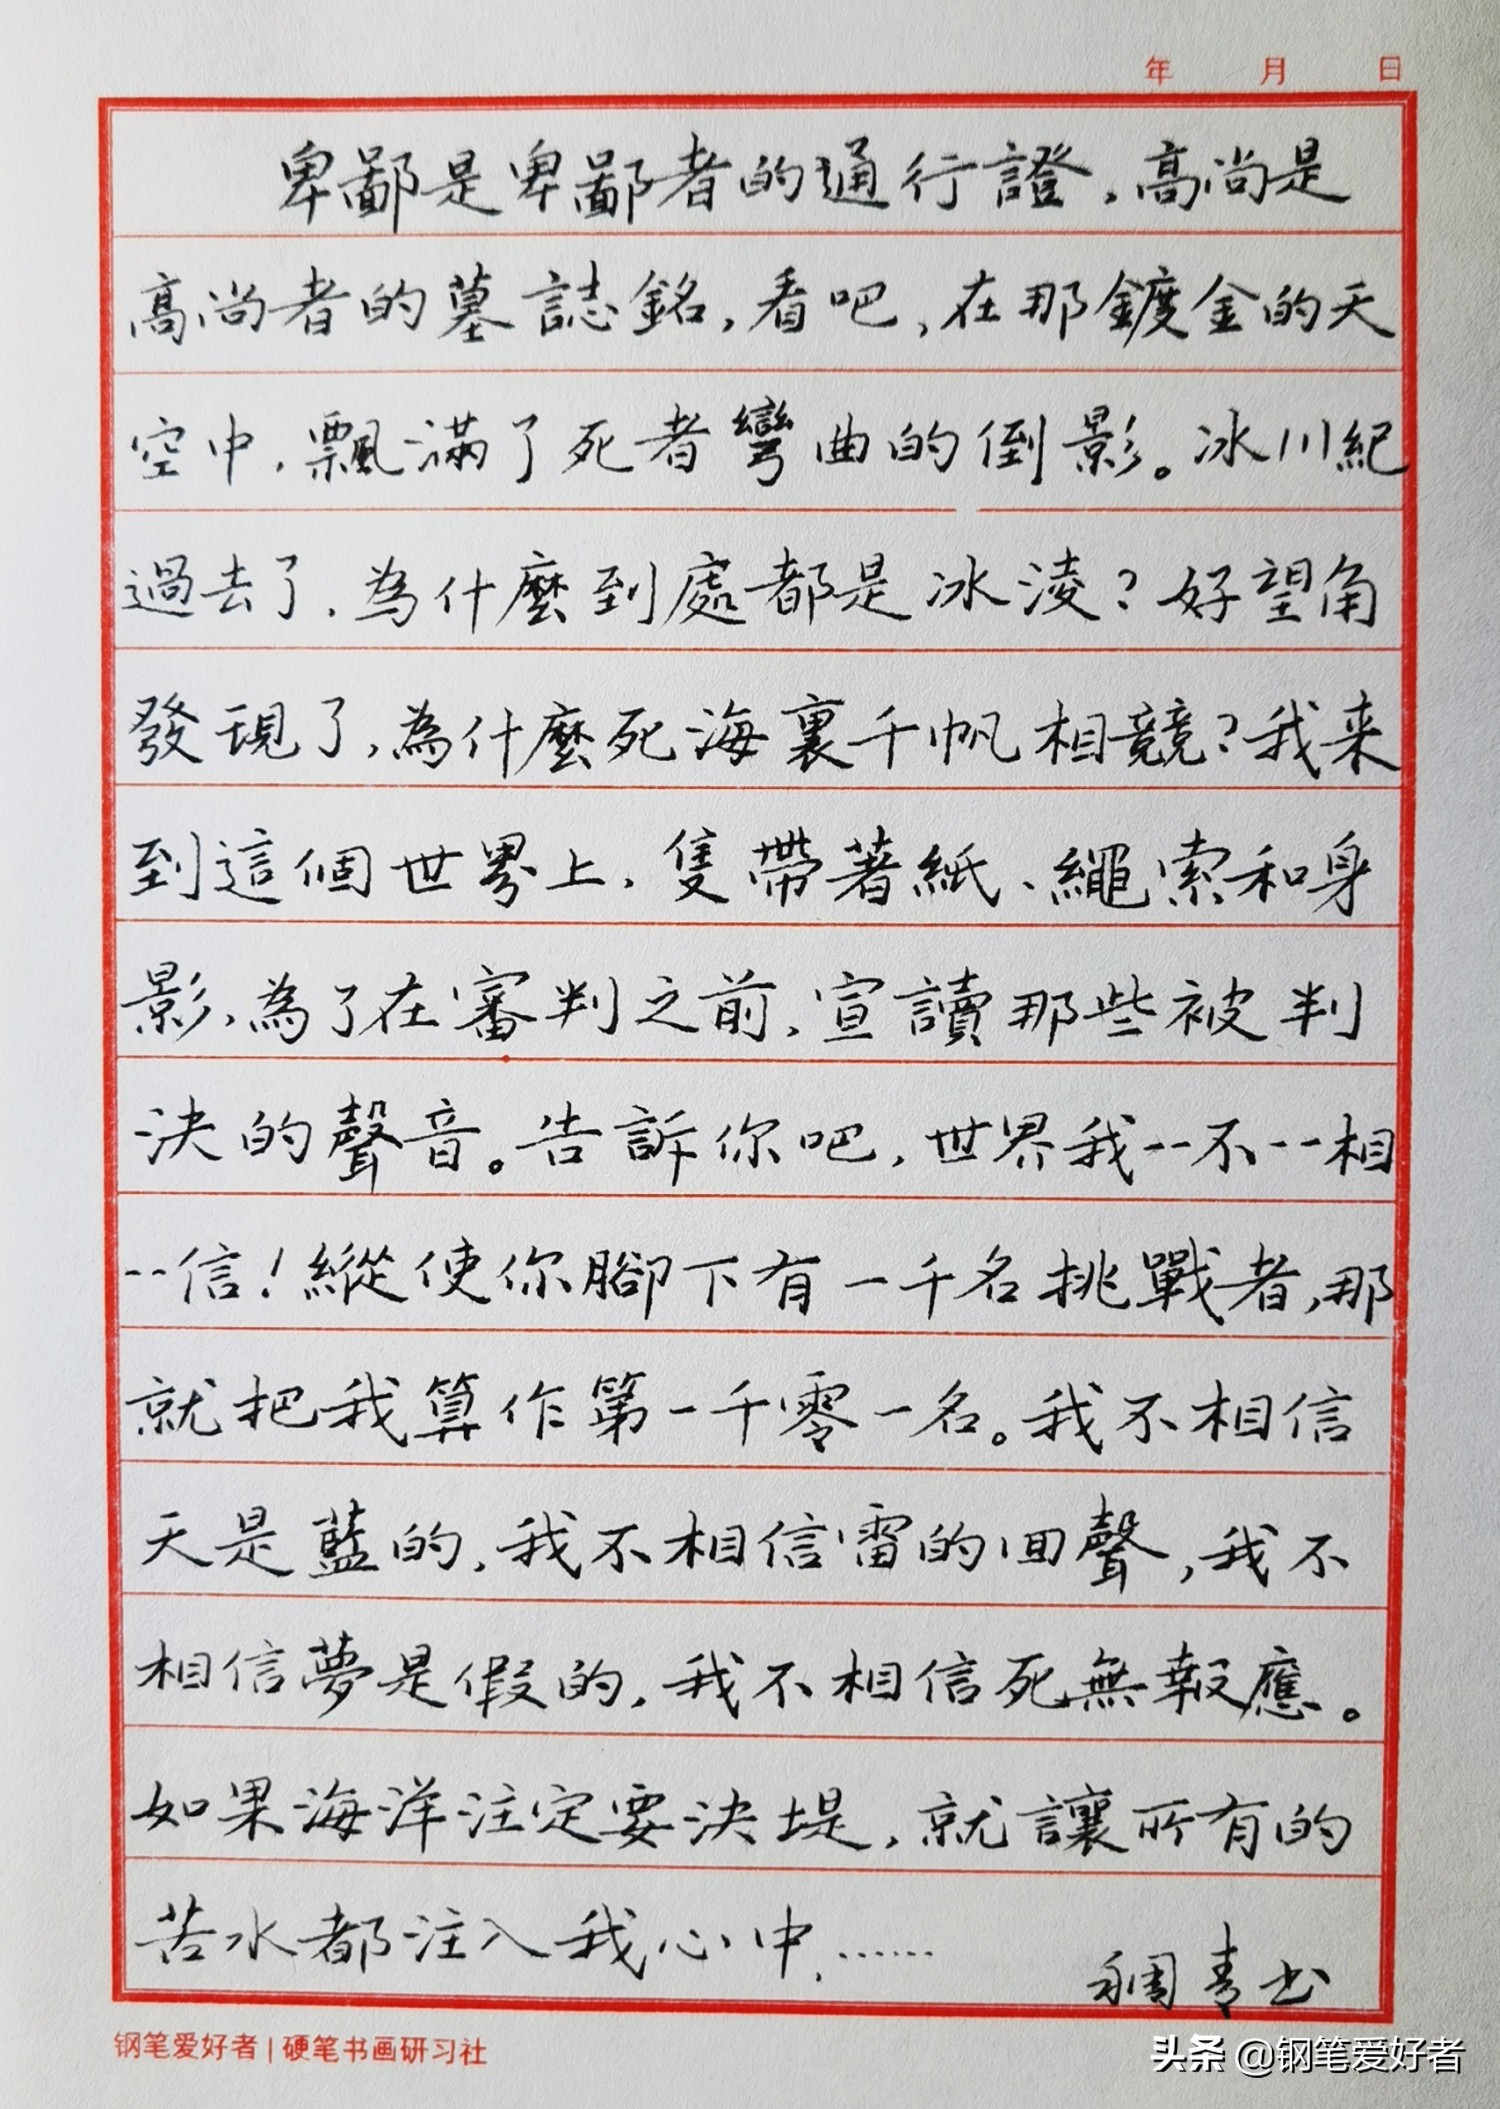 年 月 日
卑鄙是卑鄙者的通行證，高尚是
高尚者的墓誌銘，看吧，在那鍍金的天
空中，飄滿了死者彎曲的倒影。冰川紀
過去了，為什麼到處都是冰淩？好望角
發現了，為什麼死海裏千帆相競？我来
到這個世界上，隻帶著紙、繩索和身
影，為了在審判之前，宣讀那些被判
決的聲音。告訴你吧，世界我--不--相
--信！縱使你腳下有一千名挑戰者，那
就把我算作第一千零一名。我不相信
天是藍的，我不相信雷的回聲，我不
相信夢是假的，我不相信死無報應。
如果海洋注定要決堤，就讓所有的
苦水都注入我心中，……
稠青书
钢笔爱好者 | 硬笔书画研习社
头条 @钢笔爱好者